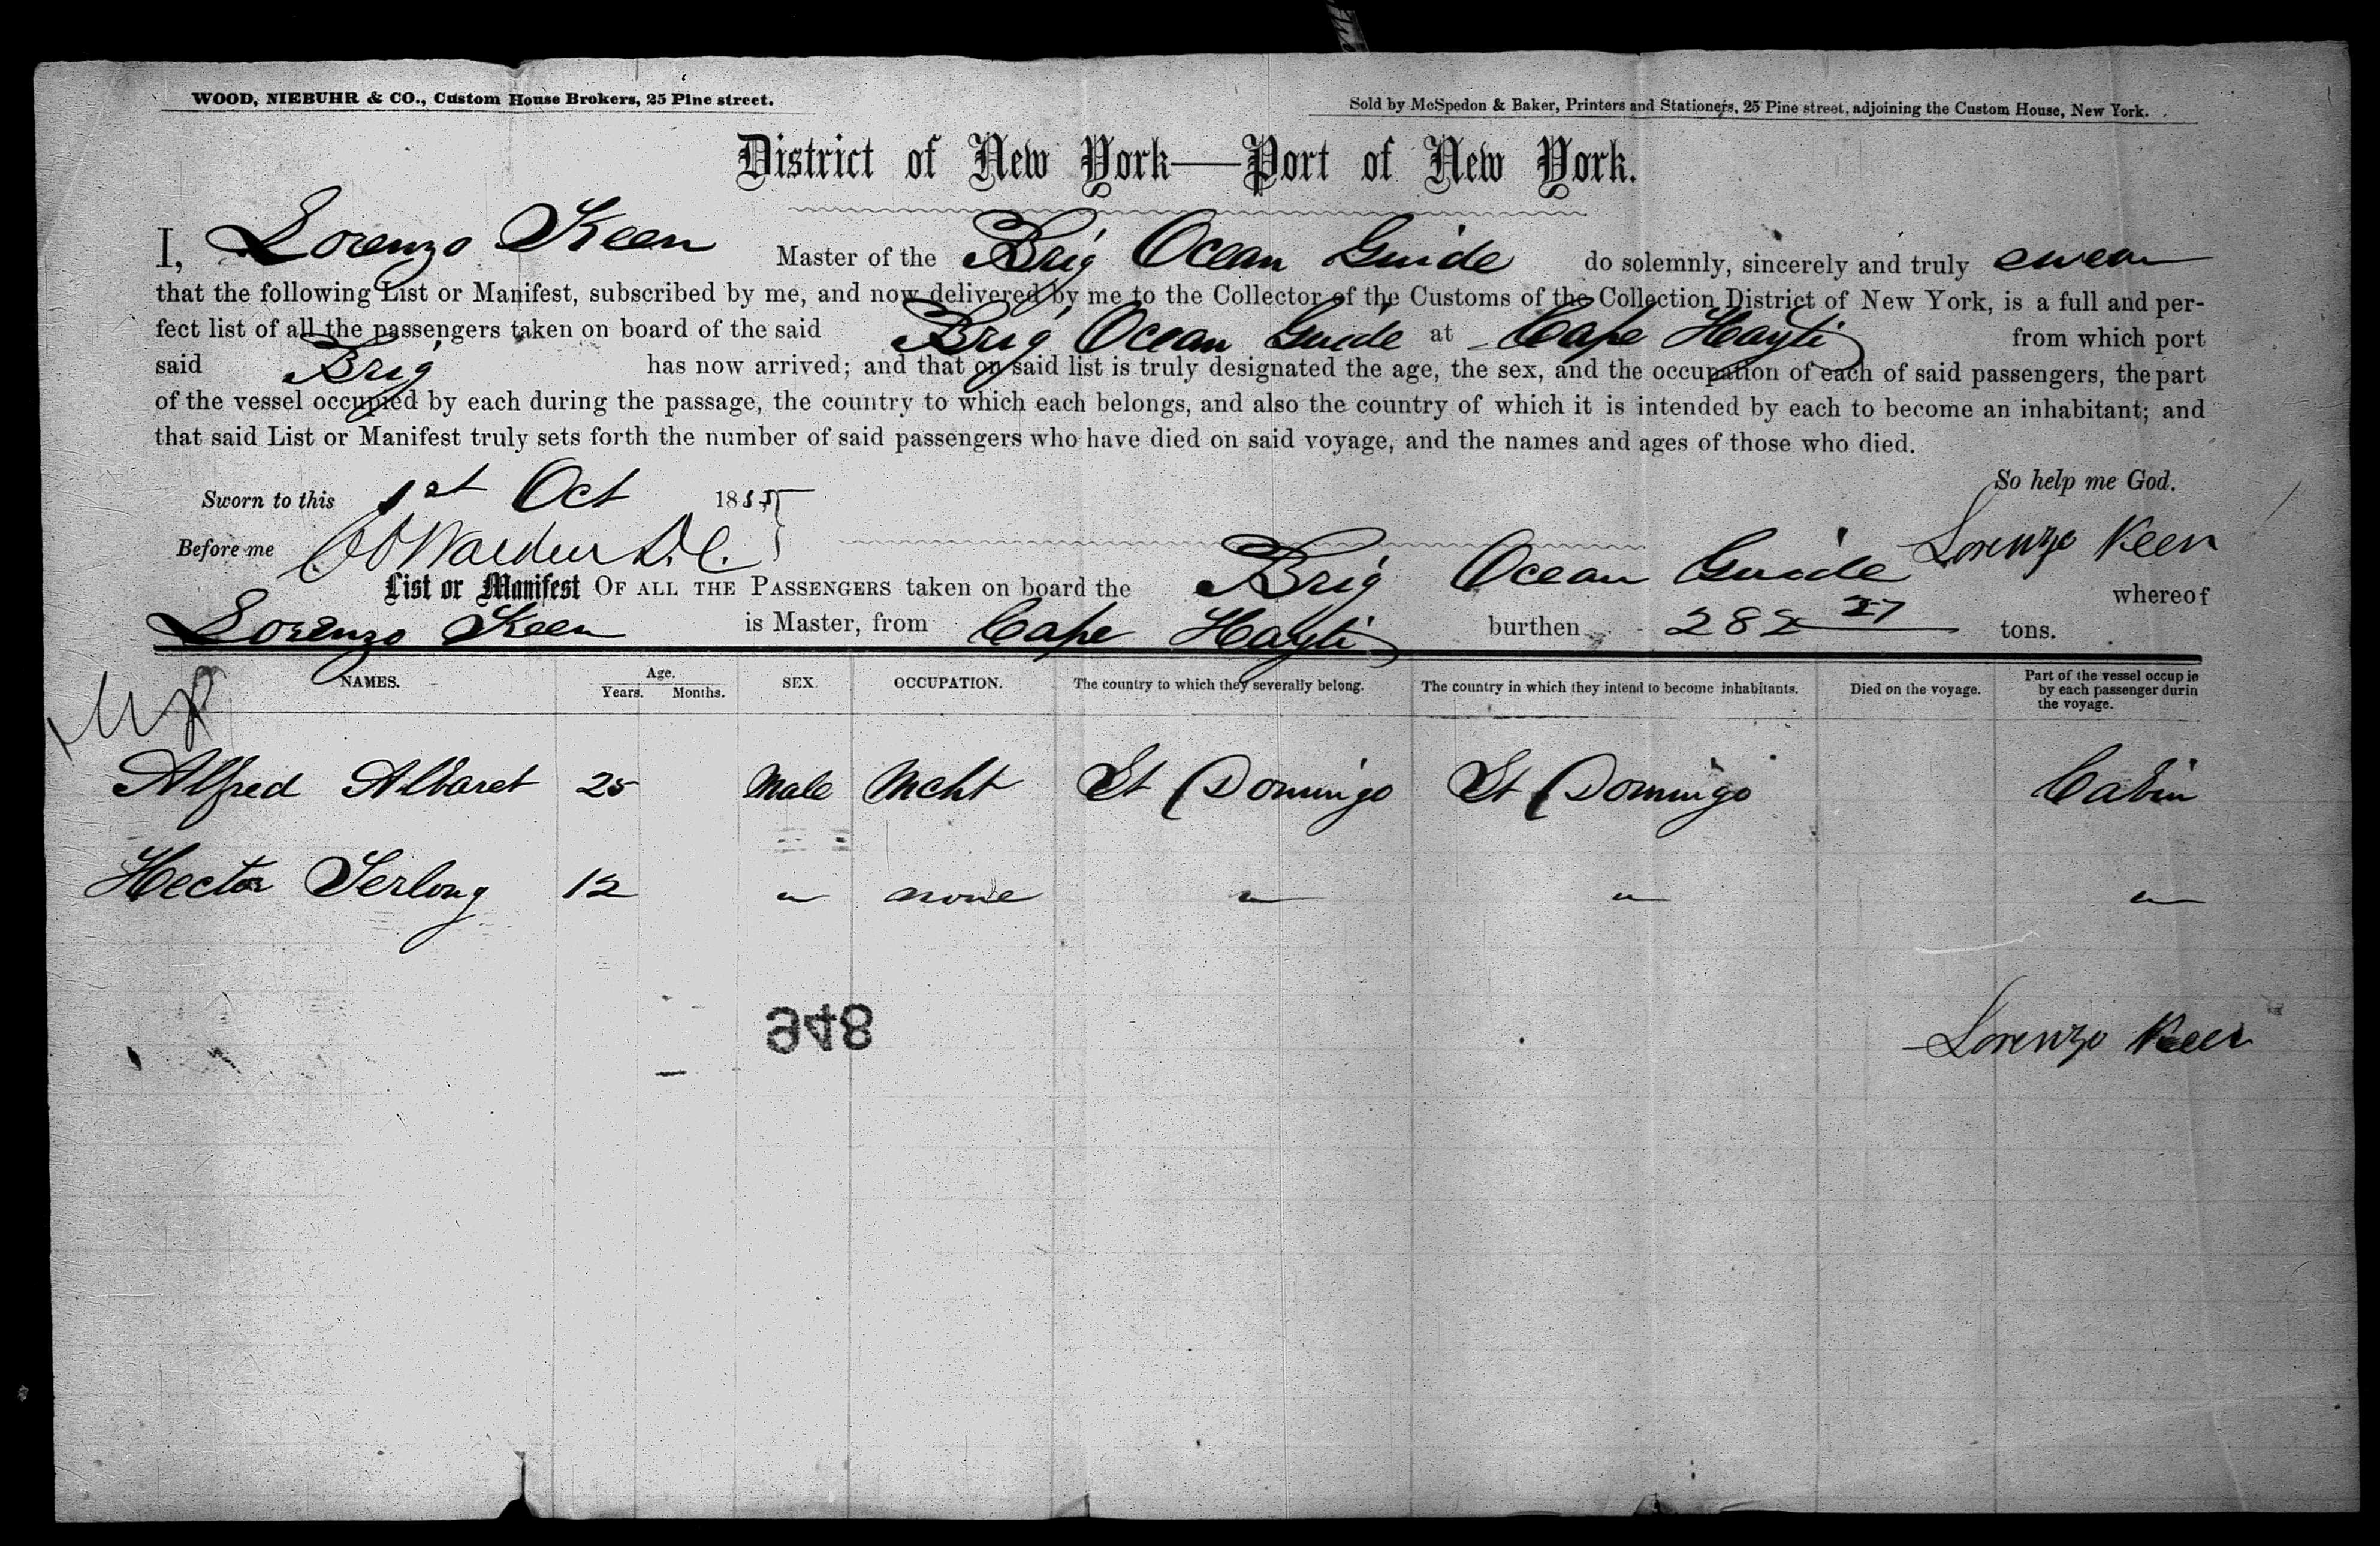 WOOD, NIEBUHR & CO., Custom House Brokers, 25 Pine street.
Sold by McSpedon & Baker, Printers and Stationers, 25 Pine street, adjoining the Custom House, New York.
District of New York—Port of New York.
I, Lorenzo Keen Master of the Brig Ocean Guide do solemnly, sincerely and truly swear
that the following List or Manifest, subscribed by me, and now delivered by me to the Collector of the Customs of the Collection District of New York, is a full and per-
fect list of all the passengers taken on board of the said Brig Ocean Guide at Cape Hayti from which port
said Brig has now arrived; and that on said list is truly designated the age, the sex, and the occupation of each of said passengers, the part
of the vessel occupied by each during the passage, the country to which each belongs, and also the country of which it is intended by each to become an inhabitant; and
that said List or Manifest truly sets forth the number of said passengers who have died on said voyage, and the names and ages of those who died.
So help me God.
Sworn to this 1st Oct 1855
Lorenzo Keen
Before me
List or Manifest OF ALL THE PASSENGERS taken on board the Brig Ocean Guide whereof
Lorenzo Keen is Master, from Cape Hayti burthen 282 27 tons.
NAMES. Age. Years. Months. SEX. OCCUPATION. The country to which they severally belong. The country in which they intend to become inhabitants. Died on the voyage. Part of the vessel occupie by each passenger durin the voyage.
Alfred Albaret 25 Male Mcht St Domingo St Domingo Cabin
Hector Serlong 12 " none " " "
948
Lorenzo Keen